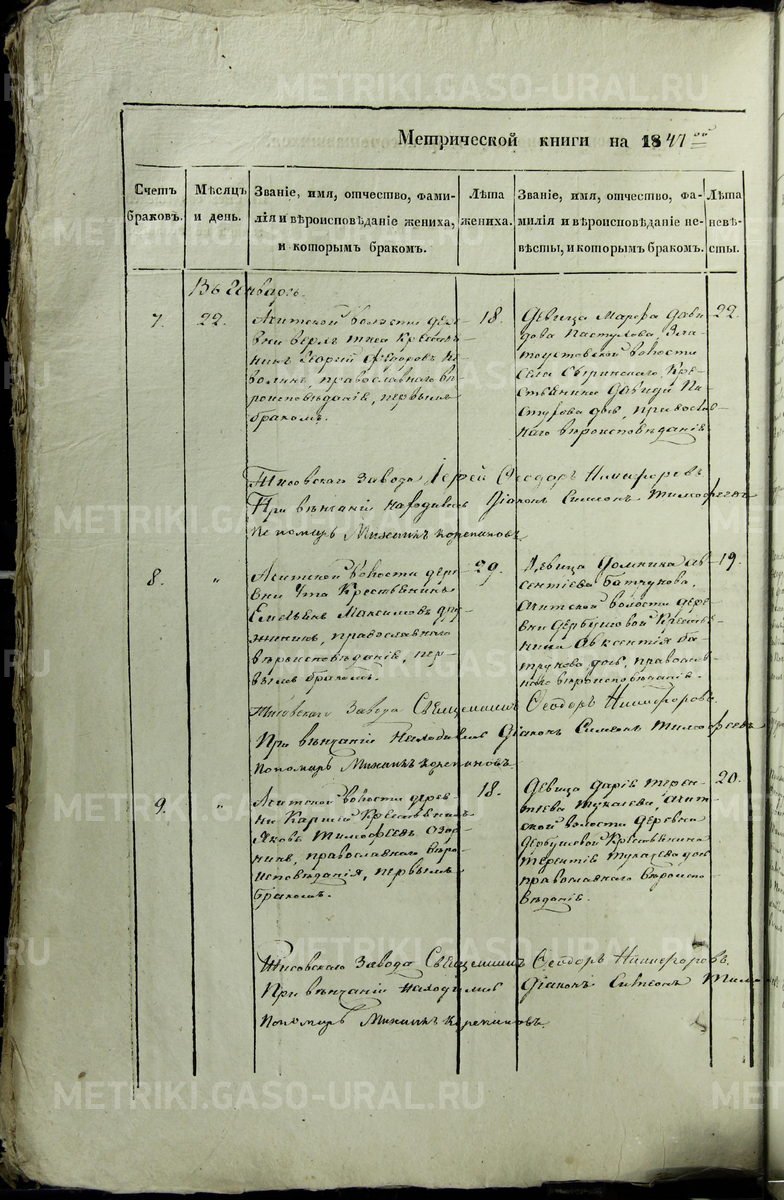 METRIKI.GASO-URAL.RU
Метрической книги на 1847 го
Счетъ браковъ.
Мѣсяцъ и день.
Званіе, имя, отчество, фами-
лія и вѣроисповѣданіе жениха,
и которымъ бракомъ.
Лѣта жениха.
Званіе, имя, отчество, фа-
милія и вѣроисповѣданіе не-
вѣсты, и которымъ бракомъ.
Лѣта невѣ-
сты.
Въ Январѣ.
7.
22.
Ачитской волости дере-
вни Верхъ Тиса Крестья-
нинъ Георгий Федоровъ
православнаго вѣ-
роисповѣданіе, первымъ
бракомъ.
18.
Девица Марфа Дави-
дова Пастухова, Зла-
тоустовской волости
села Сыринскаго, Кре-
стьянина Давида Па-
стухова дочь, православ-
наго вѣроисповѣданіе
22.
Тисовскаго Завода Іерей Феодоръ Никифоровъ
При вѣнчаніи находились Діаконъ Симеонъ Тимофеевъ
Пономарь Михаилъ Корепановъ.
8.
"
Ачитской волости дере-
вни Ута Крестьянинъ
Емельянъ Максимовъ Дру-
жининъ, православнаго
вѣроисповѣданіе, пер-
вымъ бракомъ.
29.
Девица Домника Ав-
сентіева Батракова,
Ачитской волости дере-
вни Дербушовой Крестья-
нина Авксентія Ба-
тракова дочь, православ-
наго вѣроисповѣданіе.
19.
Тисовскаго Завода Священникъ Феодоръ Никифоровъ.
При вѣнчаніи Находились Діаконъ Симеонъ Тимофеевъ
Пономарь Михаилъ Корепановъ
9.
"
Ачитской волости дерев-
ни Каршей Крестьянинъ
Яковъ Тимофеевъ Озор-
нинъ, православнаго вѣро-
исповѣданія, первымъ
бракомъ.
18.
Девица Дарія Терен-
тьева Тукачева, Ачит-
ской волости деревни
Дербушевой Крестьянина
Терентіе Тукачева дочь
православнаго вѣроиспо-
вѣданіе.
20.
Тисовскаго Завода Священникъ Феодоръ Никифоровъ.
При вѣнчаніи Находились Діаконъ Симеонъ Тимо
Пономарь Михаилъ Корепановъ.